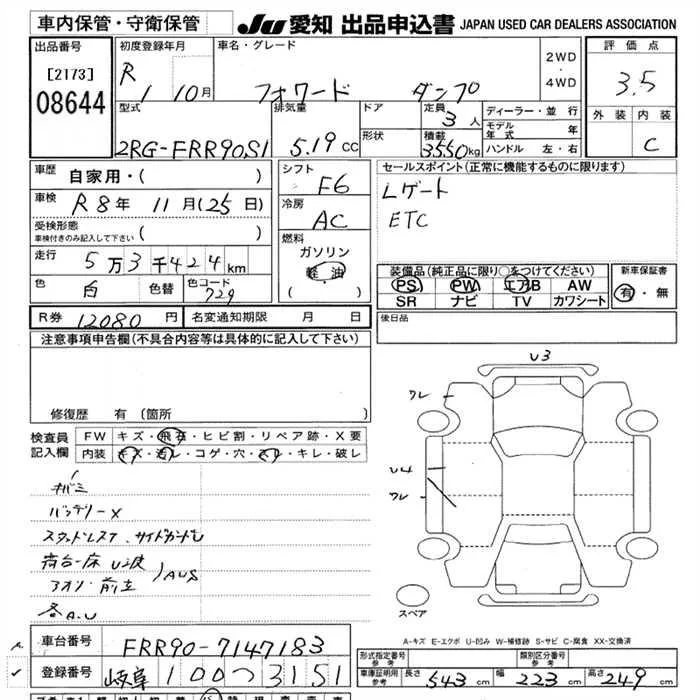 車内保管・守衛保管
JU 愛知 出品申込書 JAPAN USED CAR DEALERS ASSOCIATION
出品番号
[2173]
08644
初度登録年月
R 1 10月
車名・グレード
フォワード ダンプ
2WD
・
4WD
評価点
3.5
外装 内装
C
型式
2RG-FRR90S1
排気量
5.19 CC
ドア
形状
定員
3 人
積載
3550 kg
ディーラー・並行
モデル年式 年
ハンドル 左・右
車歴
自家用・( )
車検
R 8年 11月(25日)
受検形態
車検付きのみ記入して下さい ( )
走行
5万3千424km
色
白
色替
色コード
729
シフト
F6
冷房
AC
燃料
ガソリン
・
軽油
( )
セールスポイント(正常に機能するものに限ります)
Lゲート
ETC
装備品(純正品に限り○をつけてください)
PS PW エアB AW
SR ナビ TV カワシート
新車保証書
有・無
R券 12080 円 名変通知期限 月 日
後日品
注意事項申告欄(不具合内容等は具体的に記入して下さい)
修復歴 有 (箇所 )
検査員記入欄
FW キズ・飛石・ヒビ割・リペア跡・X要
内装 キズ・汚レ・コゲ・穴・スレ・キレ・破レ
キバミ
バッテリーX
スタッドレスタ、サイドガードU
荷台-床 U2波
アオリ・前立
AUS
各A.U
U3
ワレ
U4
ワレ
スペア
A-キズ E-エクボ U-凹み W-補修跡 S-サビ C-腐食 XX-交換済
車台番号
FRR90-7147183
登録番号
岐阜 100 つ 3151
形式指定番号
参考
類別区分番号
参考
車庫証明用
参考
長さ 543 cm 幅 223 cm 高さ 249 cm